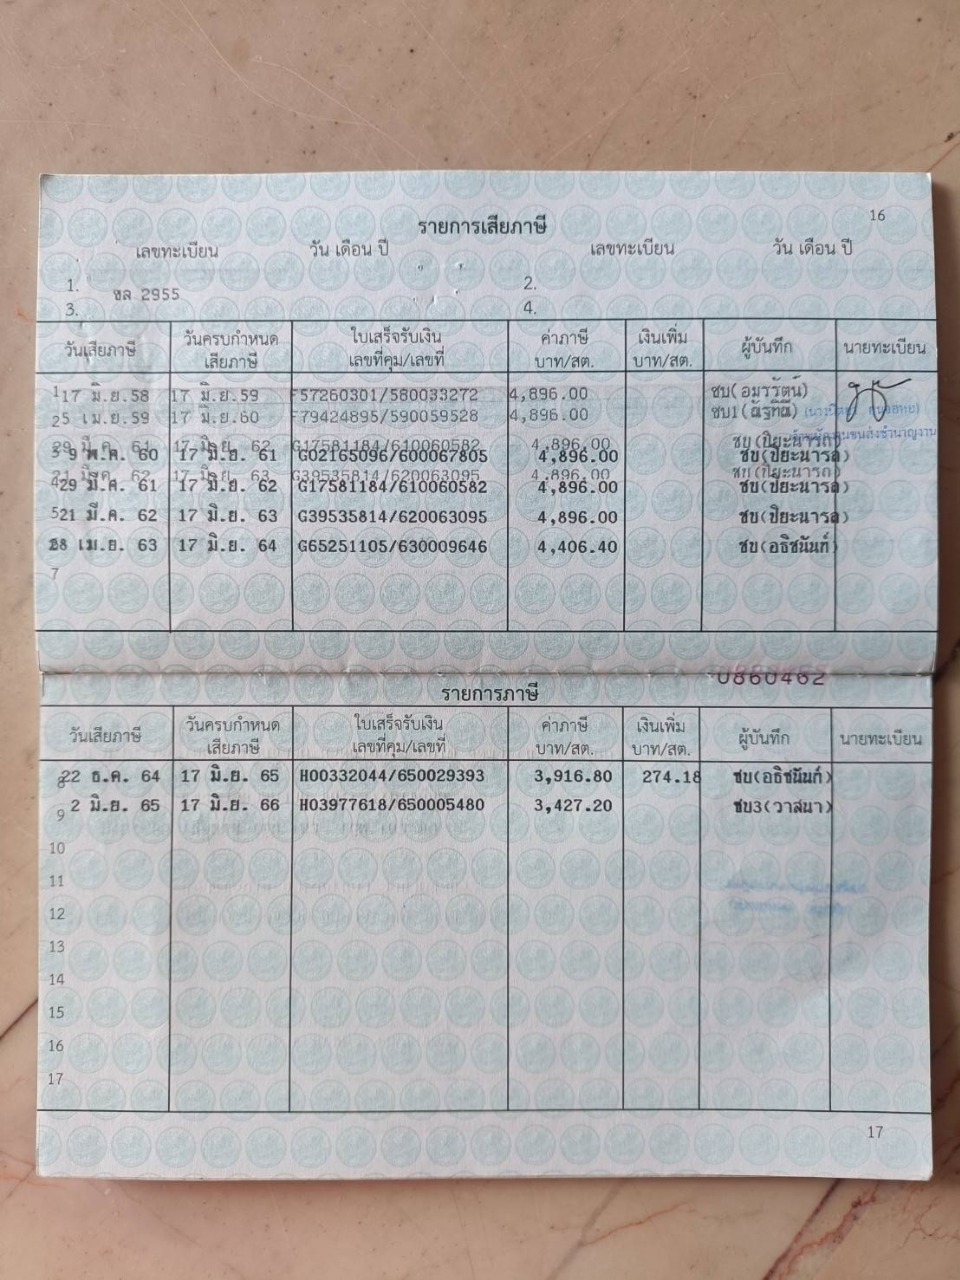 16
รายการเสียภาษี
เลขทะเบียน วัน เดือน ปี เลขทะเบียน วัน เดือน ปี
1. 2.
ชล 2955
3. 4.
วันเสียภาษี วันครบกำหนดเสียภาษี ใบเสร็จรับเงิน เลขที่คุม/เลขที่ ค่าภาษี บาท/สต. เงินเพิ่ม บาท/สต. ผู้บันทึก นายทะเบียน
1 17 มิ.ย.58 17 มิ.ย.59 F57260301/580033272 4,896.00 ชบ(อมรรัตน์)
2 5 เม.ย.59 17 มิ.ย.60 F79424895/590059528 4,896.00 ชบ1(ณัฐทิณี)
29 มี.ค. 61 17 มิ.ย. 62 G17581184/610060582 4,896.00 ชบ(ปิยะนารถ)
3 9 พ.ค. 60 17 มิ.ย. 61 G02165096/600067805 4,896.00 ชบ(ปิยะนารถ)
21 มี.ค. 62 17 มิ.ย. 63 G39535814/620063095 4,896.00 ชบ(ปิยะนารถ)
4 29 มี.ค. 61 17 มิ.ย. 62 G17581184/610060582 4,896.00 ชบ(ปิยะนารถ)
5 21 มี.ค. 62 17 มิ.ย. 63 G39535814/620063095 4,896.00 ชบ(ปิยะนารถ)
28 เม.ย. 63 17 มิ.ย. 64 G65251105/630009646 4,406.40 ชบ(อธิชนันท์)
7
0860462
รายการภาษี
วันเสียภาษี วันครบกำหนดเสียภาษี ใบเสร็จรับเงิน เลขที่คุม/เลขที่ ค่าภาษี บาท/สต. เงินเพิ่ม บาท/สต. ผู้บันทึก นายทะเบียน
8 22 ธ.ค. 64 17 มิ.ย. 65 H00332044/650029393 3,916.80 274.18 ชบ(อธิชนันท์)
9 2 มิ.ย. 65 17 มิ.ย. 66 H03977618/650005480 3,427.20 ชบ3(วาสนา)
10
11
12
13
14
15
16
17
17